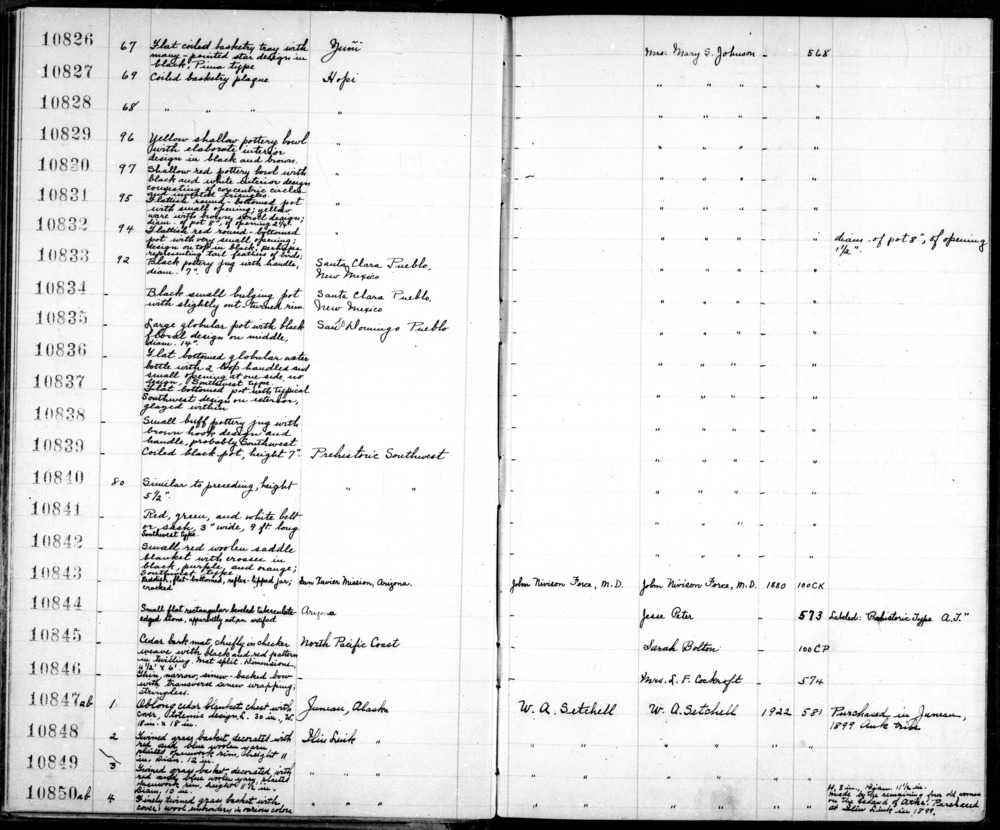 10826 67 Flat coiled basketry tray with Zuñi Mrs. Mary S. Johnson - 568
many-pointed star design in
black, Pima type
10827 69 Coiled basketry plaque Hopi " " " - "
10828 68 " " " " " " " - "
10829 96 Yellow shallow pottery bowl " " " " - "
with elaborate interior
design in black and brown.
10830 97 Shallow red pottery bowl with " - " " " - "
black and white exterior design
consisting of concentric circles
and inverted triangles
10831 95 Flattish round-bottomed pot " " " " - "
with small opening; yellow
ware with brown design;
diam. of pot 8", of opening 2½".
10832 94 Flattish red round-bottomed " " " " - " diam. of pot 8", of opening
pot with very small opening; 1½".
design on top in black, perhaps
representing tail feathers of birds;
10833 92 Black pottery jug with handle, Santa Clara Pueblo, " " " - "
diam. 7". New Mexico
10834 - Black small bulging pot Santa Clara Pueblo, " " " - "
with slightly out-turned rim New Mexico
10835 Large globular pot with black Santo Domingo Pueblo " " " - "
floral design on middle,
diam. 14".
10836 Flat bottomed globular water " " " - "
bottle with 2 loop handles and
small opening at one side, no
design, Southwest type.
10837 Flat bottomed pot with typical " " " - "
Southwest design on exterior,
glazed within
10838 Small buff pottery jug with " " " - "
brown hook design and
handle, probably Southwest
10839 Coiled black pot, height 7". Prehistoric Southwest " " " - "
10840 80 Similar to preceding, height " " " " " - "
5½".
10841 Red, green, and white belt " " " - "
or sash, 3" wide, 9 ft. long
Southwest type.
10842 - Small red woolen saddle " " " - "
blanket with crosses in
black, purple, and orange;
Southwest type
10843 Reddish, flat-bottomed, -lipped jar; San Xavier Mission, Arizona. John Nivison Force, M.D. John Nivison Force, M.D. 1880 100CK
cracked
10844 - Small flat rectangular tuberculate Arizona Jesse Peter - 573 Labeled: "Prehistoric Type A.T."
edged stone, apparently not an artifact
10845 - Cedar bark mat, chiefly in checker North Pacific Coast Sarah Bolton - 100CP
weave with black and red pattern
in twilling. Mat split. Dimensions,
x 6'.
10846 - Thin, narrow, sinew-backed bow - Mrs. L. F. Cockroft - 574
with transverse sinew wrapping;
stringless.
10847ab 1 Oblong cedar blanket chest with Juneau, Alaska W. A. Setchell W. A. Setchell 1922 581 Purchased in Juneau,
cover, design. L. 30 in., W. 1899 Auk tribe
18 in. x 18 in.
10848 2 Twined grass basket, decorated with Iliu Liuk " " " " " "
red and blue woolen yarn,
openwork rim, height 11
in., diam. 12 in.
10849 3 Twined grass basket, decorated with " " " " " "
red and blue woolen yarn,
openwork rim, height 8½ in.,
diam. 10 in.
10850ab 4 Finely twined grass basket with " " " " " " H. 8 in., diam. 11½ in.
cover; wool embroidery in various colors Made by the remaining few old women
on the Island of Attu. Purchased
at Iliu Liuk in 1899.